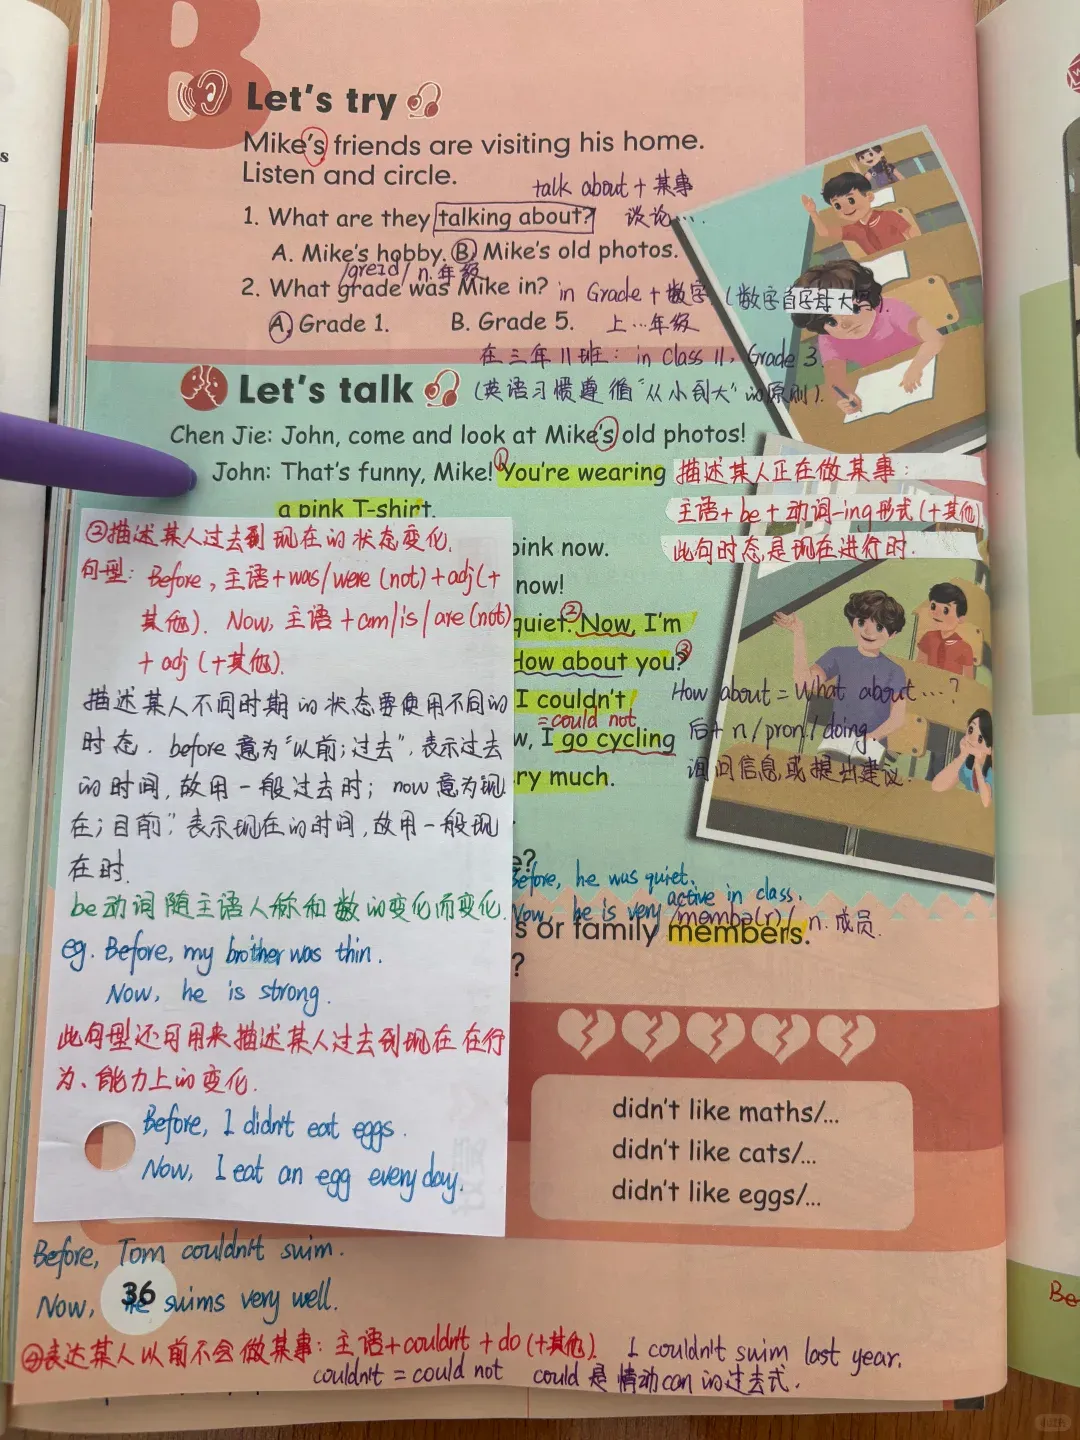 B
Let's try
Mike's friends are visiting his home.
Listen and circle.
talk about + 某事
1. What are they talking about? 谈论…
A. Mike's hobby. B. Mike's old photos.
/greɪd/ n. 年级
2. What grade was Mike in? in Grade + 数字 (数字首字母大写).
A. Grade 1. B. Grade 5. 上…年级
在三年11班: in Class 11, Grade 3.
Let's talk (英语习惯遵循"从小到大"的原则).
Chen Jie: John, come and look at Mike's old photos!
John: That's funny, Mike! ①You're wearing
a pink T-shirt.
描述某人正在做某事:
主语+be+动词-ing形式(+其他)
此句时态是现在进行时.
pink now.
now!
quiet. ②Now, I'm
How about you? ③
I couldn't
=could not
w, I go cycling
ry much.
How about = What about …?
后+ n / pron. / doing
询问信息或提出建议.
e?
Before, he was quiet.
Now, he is very active in class.
/membə(r)/ n. 成员.
s or family members.
?
②描述某人过去到现在的状态变化.
句型: Before, 主语+was/were (not)+adj(+
其他). Now, 主语+am/is/are (not)
+ adj (+其他).
描述某人不同时期的状态要使用不同的
时态. before 意为"以前;过去", 表示过去
的时间, 故用一般过去时; now 意为"现
在;目前", 表示现在的时间, 故用一般现
在时.
be动词随主语人称和数的变化而变化.
eg. Before, my brother was thin.
Now, he is strong.
此句型还可用来描述某人过去到现在在行
为、能力上的变化.
Before, I didn't eat eggs.
Now, I eat an egg every day.
didn't like maths/...
didn't like cats/...
didn't like eggs/...
Before, Tom couldn't swim.
36
Now, he swims very well.
④表达某人以前不会做某事: 主语+couldn't + do (+其他). I couldn't swim last year.
couldn't = could not could 是情动can的过去式.
Be
小红书